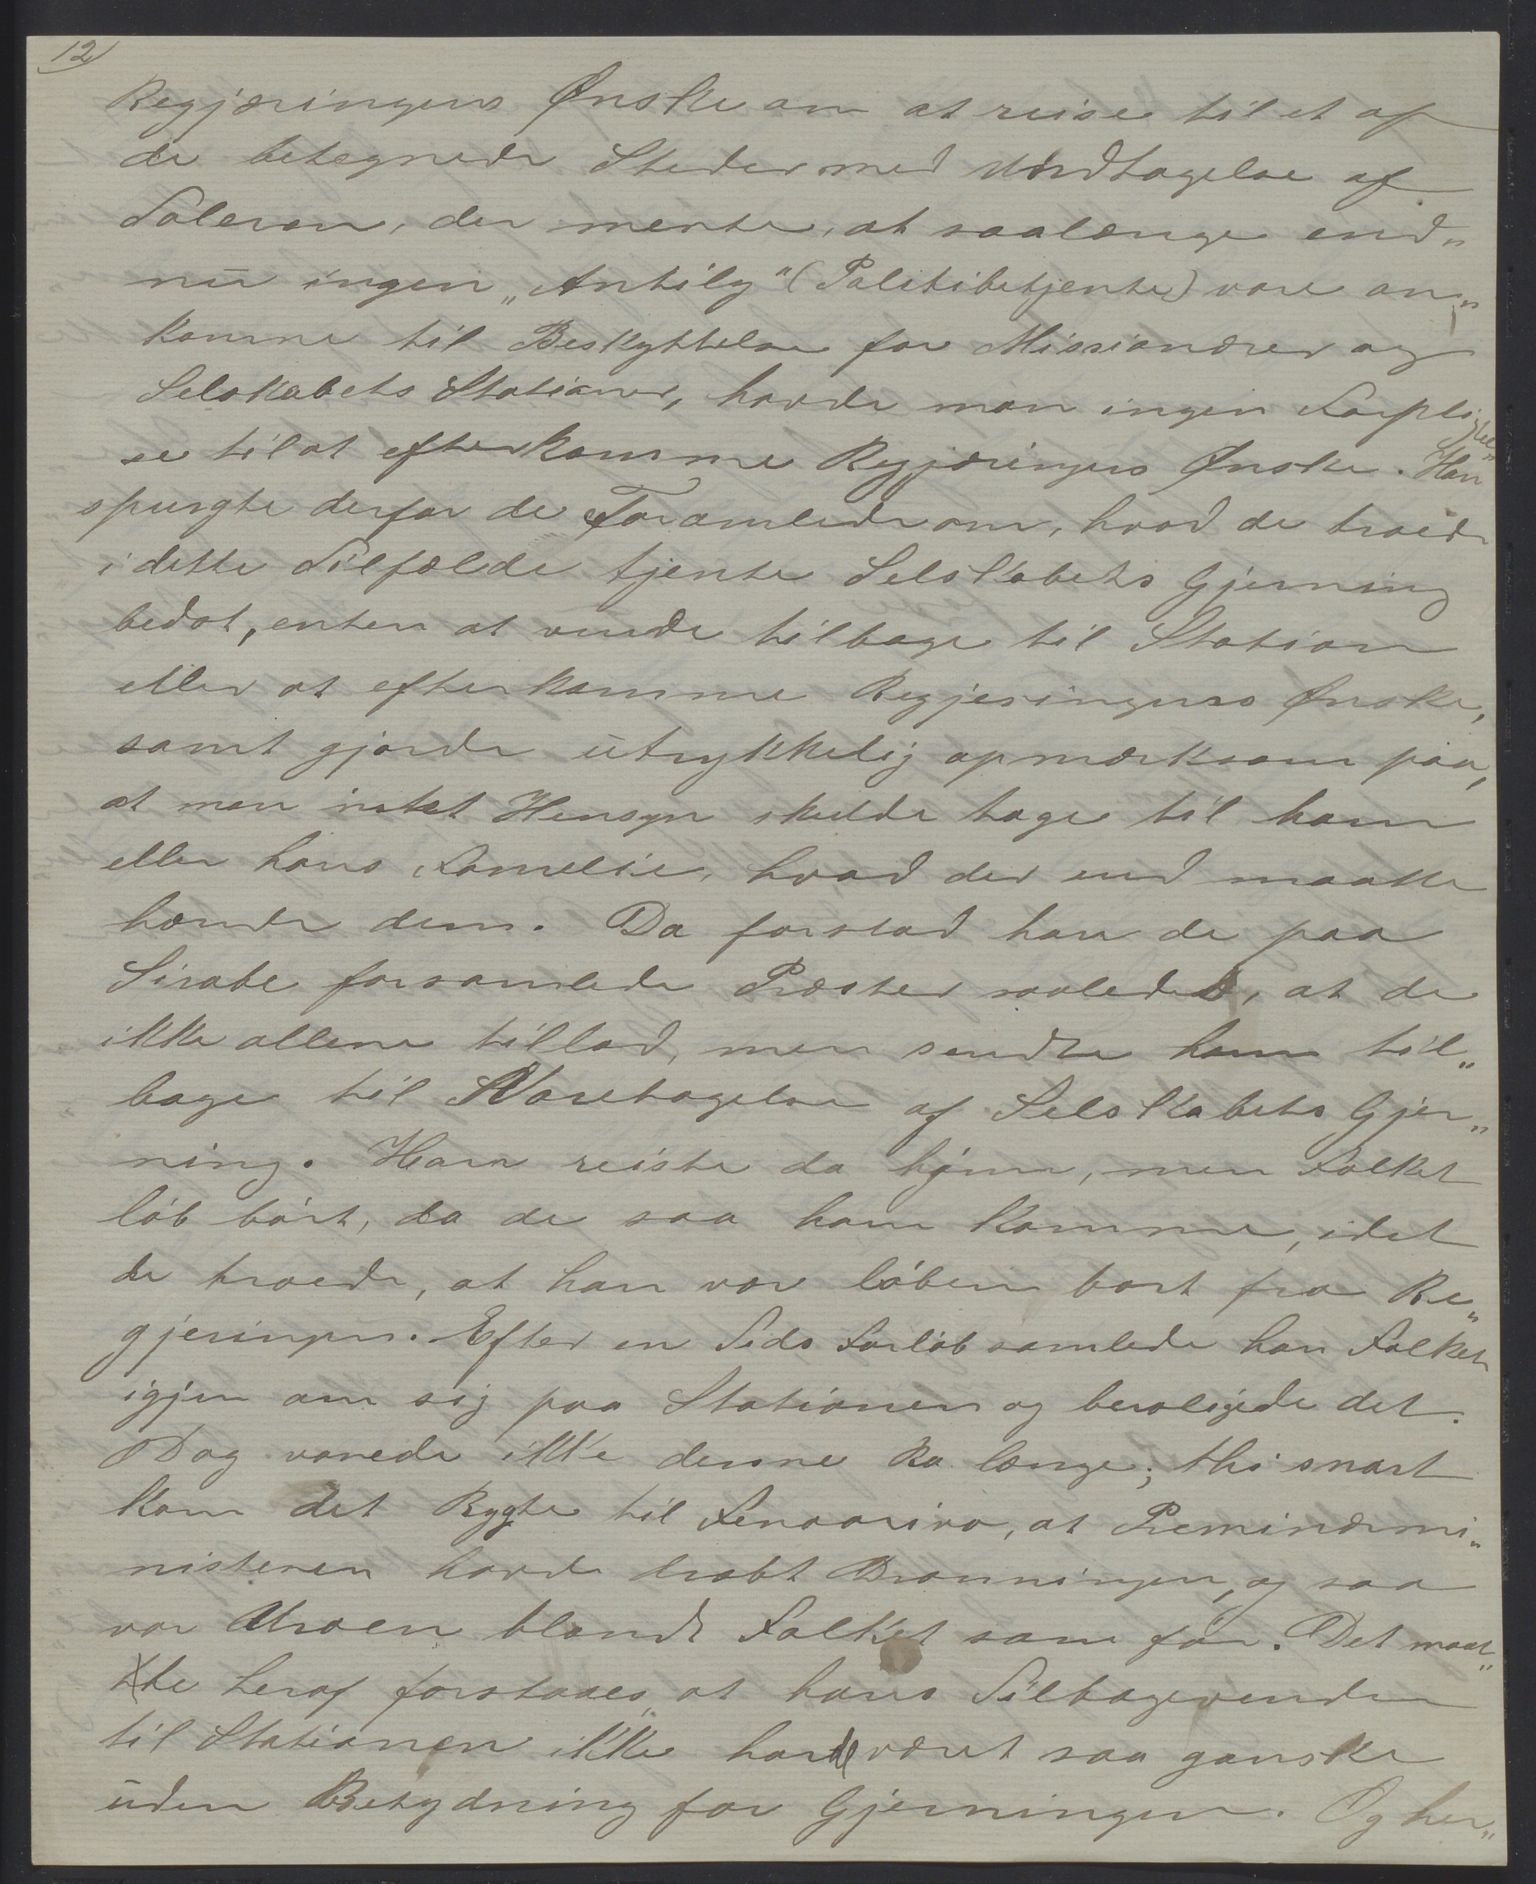 12)
Regjæringens Ønske om at reise til et af
de betegnede Steder med Undtagelse af
Soleran, der mente, at saalænge end„
nu ingen „Antily“ (Politibetjente) vare an„
komne til Beskyttelse for Missionærer og
Selskabets Stationer, havde man ingen Forpligtel„
se til at efterkomme Regjæringens Ønske. Han
spurgte derfor de Forsamlede om, hvad de troede
i dette Tilfælde tjente Selskabets Gjerning
bedst, enten at vende tilbage til Station
eller at efterkomme Regjeringens Ønske,
samt gjorde utrykkelig opmærksom paa,
at man intet Hensyn skulde tage til ham
eller hans Familie, hvad der end maatte
hænde dem. Da forstod han de paa
Sirabe forsamlede Præster saaledes, at de
ikke allene tillod, men sendte ham til„
bage til Varetagelse af Selskabets Gjer„
ning. Han reiste da hjem, men Folket
løb bort, da de saa ham komme, idet
de troede, at han var løben bort fra Re„
gjeringen. Efter en Tids Forløb samlede han Folket
igjen om sig paa Stationen og beroligede det.
Dog varede ikke denne Ro længe; thi snart
kom det Rygte til Fenoarivo, at Premierærmi„
nisteren havde dræbt Dronningen, og saa
var Uroen blandt Folket som før. Det maat„
te heraf forstaaes, at hans Tilbagevenden
til Stationen ikke havde været saa ganske
uden Betydning for Gjerningen. Og her„